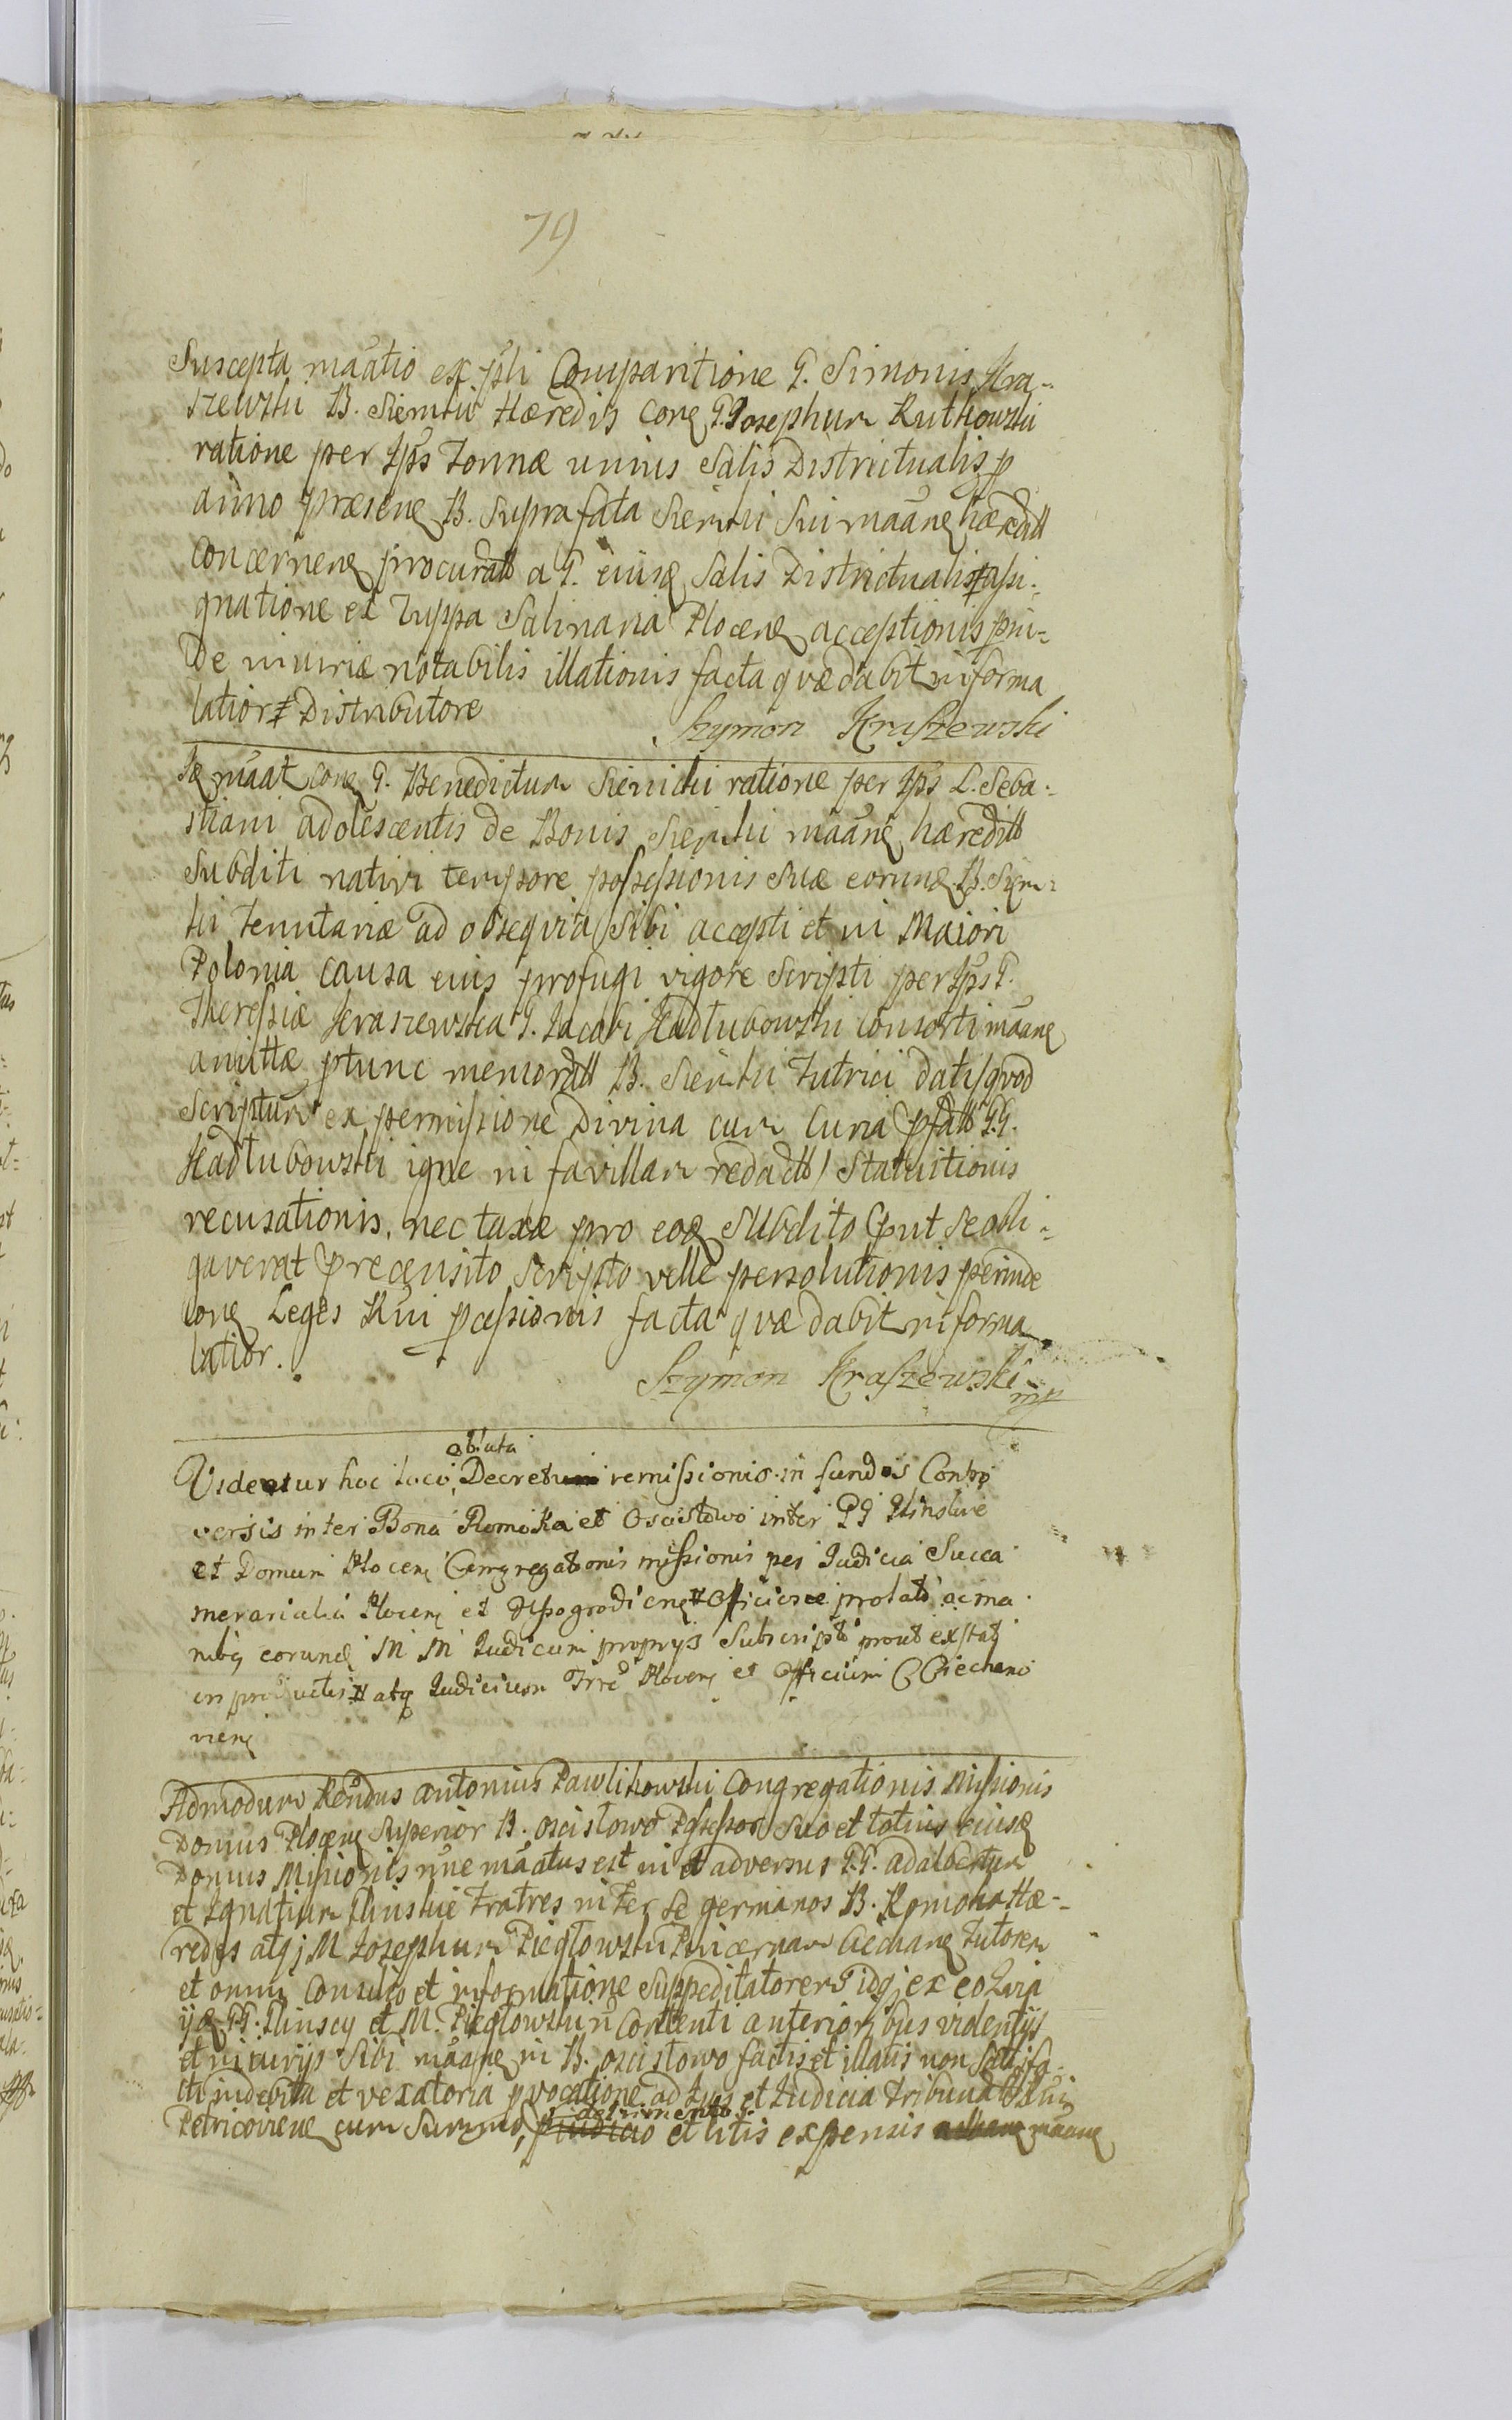 79
Suscepta mãatio ex psti Comparitione G. Simonis Kra-
szewski B. Siemki Hæredis cone G. Josephum Rutkowski
ratione per Ips Tonnæ unius Salis Districtualis p
anno præsene B. Suprafata Siemki Sui mãane hæredtt
concernene procuratt a G. eiusd Salis Districtualis assi-
gnatione ex Zuppa Salinaria Plocene acceptionis proin-
de iniuriæ notabilis illationis facta quæ dabit in forma
latiori Distributore
Szymon Kraszewski
Id mãat cone G. Benedictum Siemicki ratione per Ips L. Seba-
stiani adolescentis de Bonis Siemki mãane hæreditt
Subditi nativi tempore possessionis Suæ eorund B. Siem-
ki tenutariæ ad obsequia Sibi accepti et in Maiori
Polonia causa eius profugi vigore Scripti per Ips G.
Theressiæ Kraszewska G. Jacobi Kadłubowski consorti mãane
amittæ ptunc memoratt B. Siemki Tutrici dati quod
Scriptum ex permissione Divina cum Curia pfatt GG.
Kadłubowski igne in favillam redactt / Statuitionis
recusationis, nec taxæ pro eod Subdito prut se obli-
gaverat precensito Scripto velle persolutionis perinde
cone Leges Rni pcessionis facta quæ dabit in forma
latior.
Szymon Kraszewski mp
oblata
Videatur hoc loco, Decretum remissionis in fundos Contro
versis inter Bona Romoka et Oscislowo inter GG Ilinskie
et Domum Plocene Congregationis missionis per Judicia Succa
merarialia Plocene et Officiose prolatt ac ma
nibq eorund M M Judicum proprys Subscriptt prout extat
in productis atq Judicium Trre Plocene et Officium C Ciechano
viene
Admodum Rendus Antonius Pawlikowski Congregationis Missionis
Domus Plocene Superior B. Oscislowo Possessor Suo et totius eiusd
Domus Missionis nne mãatus est in et adversus GG. Adalbertum
et Ignatium Ilinskie Fratres inter Se germanos B. Romoka Hæ-
redes atq M Josephum Piegłowski Pincernam Ciechane Tutorem
et omni Consilio et informatione Suppeditatorem idq ex eo Quia
ijd GG. Ilinscy et M. Piegłowski n Contenti anterioribus violentys
et iniurijs Sibi mãane in B. Oscislowo factis et illatis non Satisfa-
cti indebita et vexatoria pvocatione ad Jus et Judicia Tribunalis Rni
detrimento
Petricoviene cum Summo, et litis expensis mãane